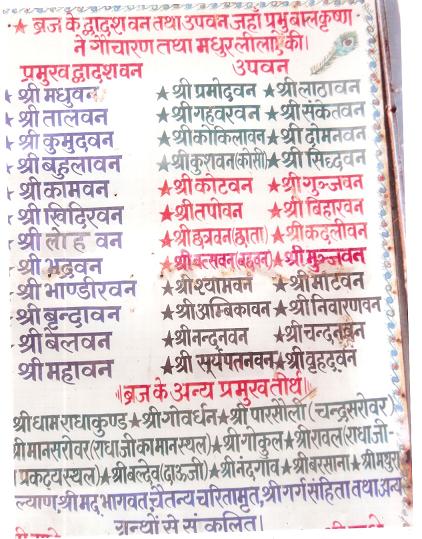 ★ ब्रज के द्वादश वन तथा उपवन जहाँ प्रभु बालकृष्ण
ने गौचारण तथा मधुर लीला की।
प्रमुख द्वादश वन
★ श्री मधुवन
★ श्री तालवन
★ श्री कुमुदवन
★ श्री बहुलावन
★ श्री कामवन
★ श्री खिदिरवन
★ श्री लोह वन
★ श्री भद्रवन
★ श्री भाण्डीरवन
★ श्री बृन्दावन
★ श्री बेलवन
श्री महावन
उपवन
★ श्री प्रमोदवन ★ श्री लाठावन
★ श्री गहवरवन ★ श्री संकेतवन
★ श्री कोकिलावन ★ श्री दोमनवन
★ श्री कुशवन (कोसी) ★ श्री सिद्दवन
★ श्री कोटवन ★ श्री गुञ्जवन
★ श्री तपोवन ★ श्री बिहारवन
★ श्री छत्रवन (छाता) ★ श्री कदलीवन
★ श्री बत्सवन (बहवन) ★ श्री मुञ्जवन
★ श्री श्यामवन ★ श्री माटवन
★ श्री अम्बिकावन ★ श्री निवारणवन
★ श्री नन्दनवन ★ श्री चन्दनवन
★ श्री सुर्यपतनवन ★ श्री वृहद्वन
॥ ब्रज के अन्य प्रमुख तीर्थ ॥
श्रीधाम राधाकुण्ड ★ श्री गोवर्धन ★ श्री पारसौली (चन्द्रसरोवर)
श्री मानसरोवर (राधाजी का मान स्थल) ★ श्री गोकुल ★ श्री रावल (राधाजी-
प्रकट्य स्थल) ★ श्री बल्देव (दाऊजी) ★ श्री नंदगाँव ★ श्री बरसाना ★ श्री मथुरा
ल्याण, श्रीमद् भागवत, चैतन्य चरितामृत, श्री गर्ग संहिता तथा अन्य
ग्रन्थों से संकलित।